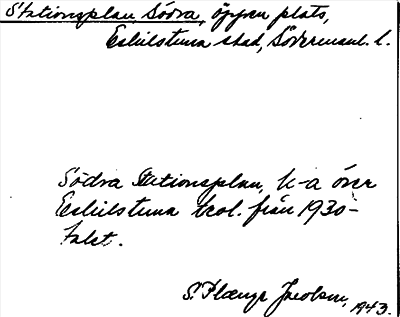 Stationsplan, Södra, öppen plats,
Eskilstuna stad, Södermanl. l.
Södra Stationsplan, k-a över
Eskilstuna kvl. från 1930-
talet.
S. Plænge Jacobson, 1943.